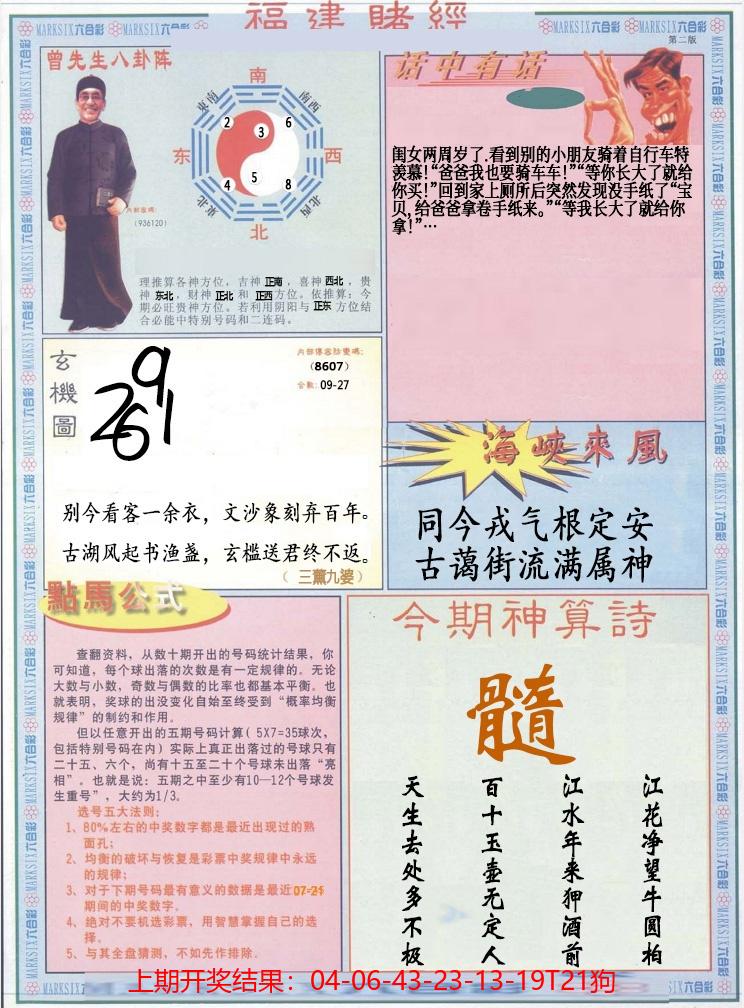 福建賭經
MARKSIX六合彩
第二版
曾先生八卦阵
南
东南
南西
东
西
东北
北西
北
2
3
6
4
5
8
内部密碼:
(936120)
理推算各神方位，吉神 正南 ，喜神 西北 ，贵
神 东北，财神 正北 和 正西 方位。依推算：今
期必旺贵神方位。若利用阴阳与 正东 方位结
合必能中特别号码和二连码。
话中有话
闺女两周岁了.看到别的小朋友骑着自行车特
羡慕!“爸爸我也要骑车车!”“等你长大了就给
你买!”回到家上厕所后突然发现没手纸了“宝
贝,给爸爸拿卷手纸来。”“等我长大了就给你
拿!”…
玄機圖
9
2
6
1
(8607)
合數: 09-27
别今看客一余衣，文沙象刻弃百年。
古湖风起书渔盏，玄槛送君终不返。
（ 三薰九婆）
海峽來風
同今戎气根定安
古蔼街流满属神
點馬公式
查翻资料，从数十期开出的号码统计结果，你
可知道，每个球出落的次数是有一定规律的。无论
大数与小数，奇数与偶数的比率也都基本平衡。也
就表明，奖球的出没变化自始至终受到“概率均衡
规律”的制约和作用。
但以任意开出的五期号码计算( 5X7=35球次，
包括特别号码在内）实际上真正出落过的号球只有
二十五、六个，尚有十五至二十个号球未出落“亮
相”。也就是说：五期之中至少有10—12个号球发
生重号”，大约为1/3。
选号五大法则：
1、80%左右的中奖数字都是最近出现过的熟
面孔；
2、均衡的破坏与恢复是彩票中奖规律中永远
的规律；
3、对于下期号码最有意义的数据是最近07-21
期间的中奖数字。
4、绝对不要机选彩票，用智慧掌握自己的选
择。
5、与其全盘猜测，不如先作排除.
今期神算詩
髓
江花净望牛圆柏
江水年来狎酒前
百十玉壶无定人
天生去处多不极
上期开奖结果：04-06-43-23-13-19T21狗